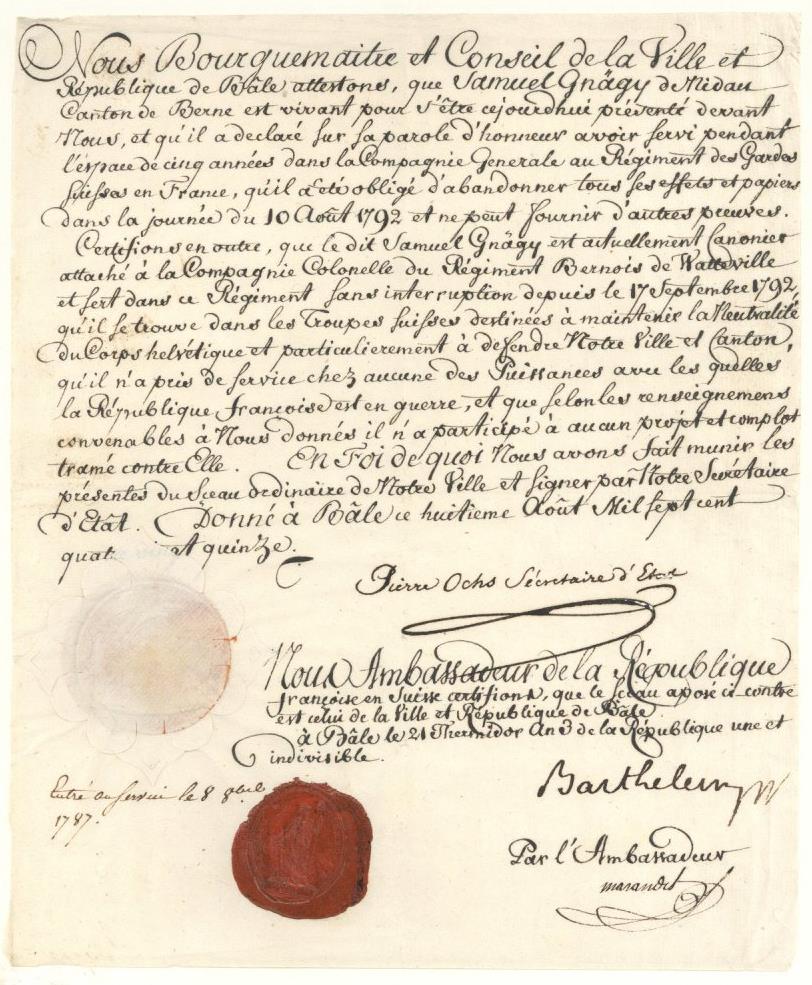 Nous Bourguemaitre et Conseil de la Ville et
République de Bâle attestons, que Samuel Gnägy de Nidau
Canton de Berne est vivant pour s'être cejourdhui présenté devant
Nous, et qu'il a declaré sur sa parole d'honneur avoir servi pendant
l'espace de cinq années dans la Compagnie Generale au Régiment des Gardes
suisses en France, qu'il a été obligé d'abandonner tous ses effets et papiers
dans la journée du 10 Août 1792 et ne peut fournir d'autres preuves.
Certifions en outre, que le dit Samuel Gnägy est actuellement Canonier
attaché à la Compagnie Colonelle du Régiment Bernois de Watteville
et sert dans ce Régiment sans interruption depuis le 17 Septembre 1792,
qu'il se trouve dans les Troupes suisses destinées à maintenir la Neutralité
du Corps helvétique et particulierement à defendre Notre Ville et Canton,
qu'il n'a pris de service chez aucune des Puissances avec les quelles
la République françoise est en guerre, et que selon les renseignemens
convenables à Nous donnés il n'a participé à aucun projet et complot
tramé contre Elle. En Foi de quoi Nous avons fait munir les
présentes du Sceau ordinaire de Notre Ville et signer par Notre Secrétaire
d'Etat. Donné à Bâle ce huitieme Août Mil sept cent
quat et quinze.
Pierre Ochs Sécretaire d'Etat
Nous Ambassadeur de la République
françoise en Suisse certifions, que le sceau aposé ci contre
est celui de la Ville et République de Bâle.
à Bâle le 21 Thermidor An 3 de la République une et
indivisible.
Barthelemy
Entré au service le 8 8bre
1787.
Par l'Ambassadeur
marandet